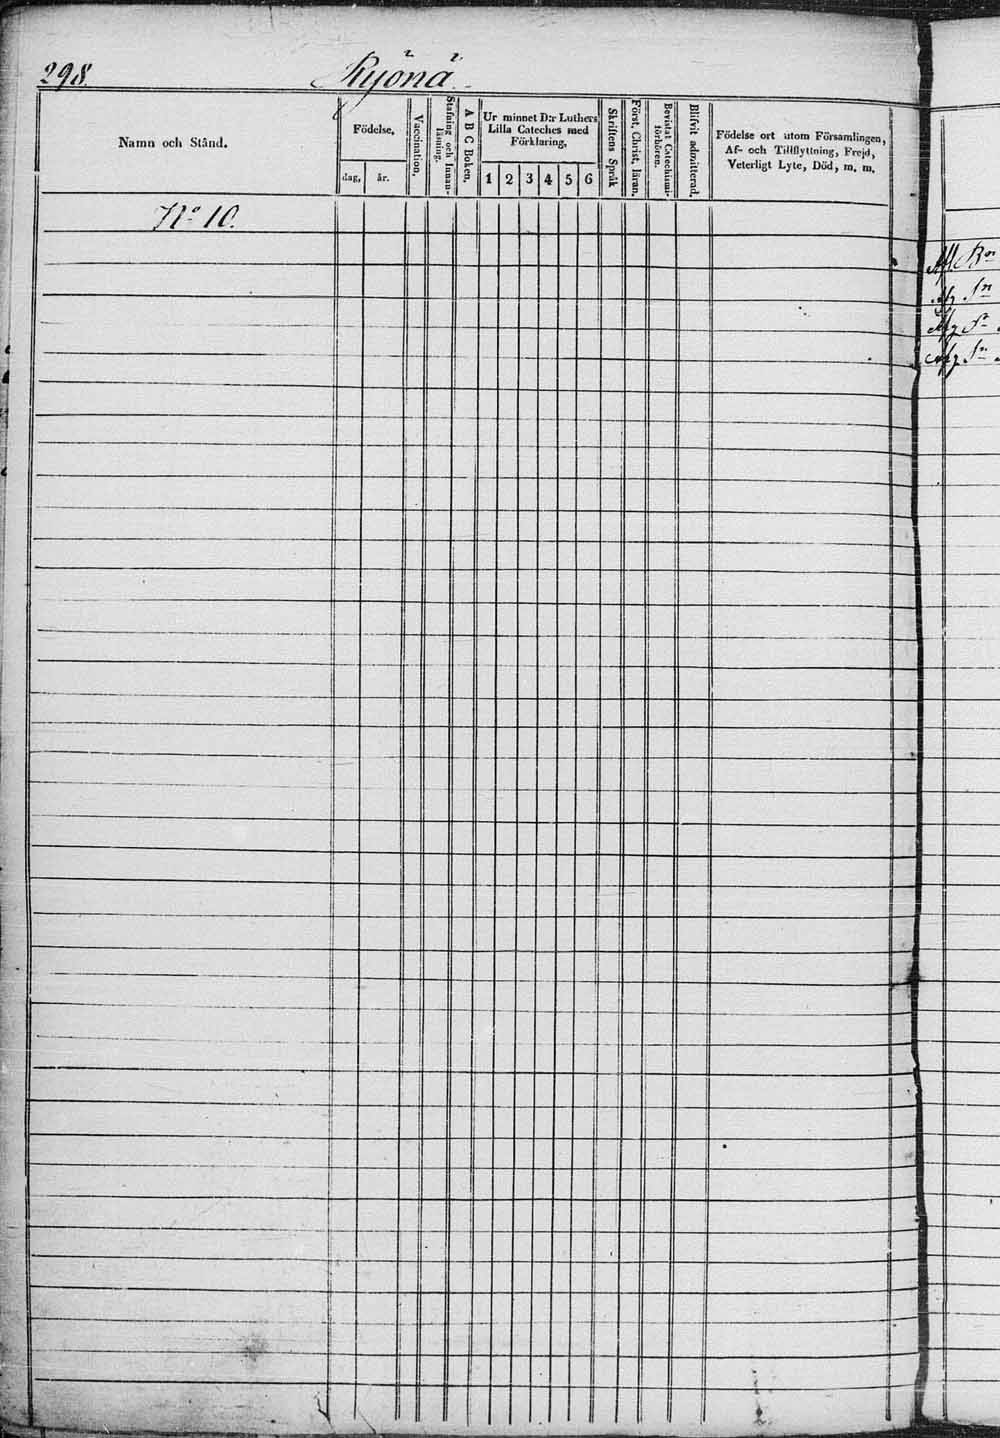 298. Ryönä
Namn och Stånd.
Födelse,
dag, år.
Vaccination.
Stafning och Innanläsning.
A B C Boken.
Ur minnet D:r Luthers
Lilla Cateches med
Förklaring,
1 2 3 4 5 6
Skriftens Språk
Först. Christ. läran.
Bevistat Catechismi-
förhören.
Blifvit admitterad.
Födelse ort utom Församlingen,
Af- och Tillflyttning, Frejd,
Veterligt Lyte, Död, m. m.
No 10.